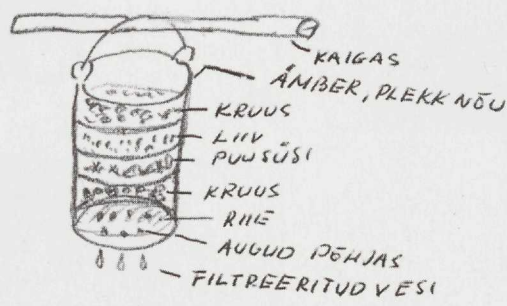 KAIGAS
ÄMBER, PLEKKNÕU
KRUUS
LIIV
PUUSÜSI
KRUUS
RIIE
AUGUD PÕHJAS
FILTREERITUD VESI